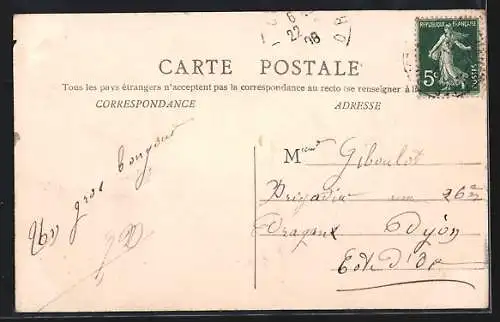 6
22
08
REPUBLIQUE FRANÇAISE
5c
POSTES
CARTE POSTALE
Tous les pays étrangers n'acceptent pas la correspondance au recto (se renseigner à la
CORRESPONDANCE
ADRESSE
Un gros bonjour
M Giboulot
Brigadier au 26e
Dragons Dijon
Cote d'Or